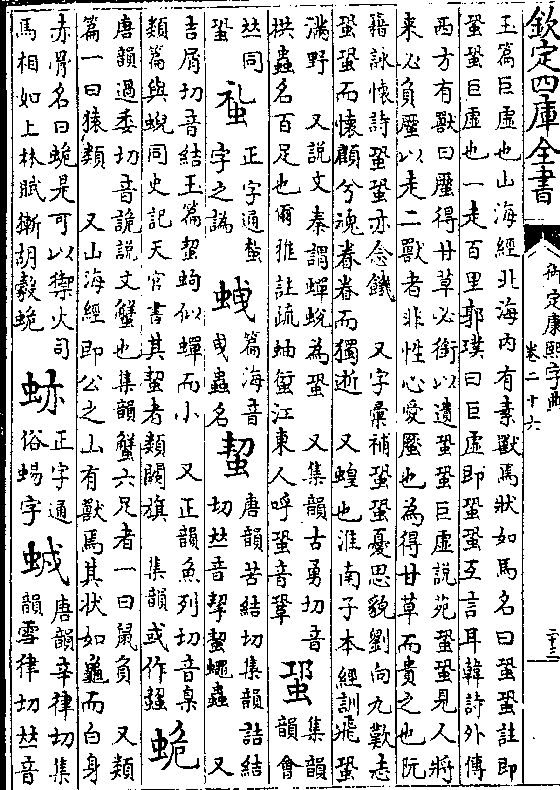 欽定四庫全書
御定康熙字典
卷二十六
玉篇巨虛也山海經北海内有素獸焉狀如馬名曰蛩蛩註即
蛩蛩巨虛也一走百里郭璞曰巨虛即蛩蛩互言耳韓詩外傳
西方有獸曰蟨得甘草必銜以遺蛩蛩巨虛說苑蛩蛩見人將
來必負蟨以走二獸者非性心愛蟨也為得甘草而貴之也阮
籍詠懷詩蛩蛩亦念饑 又字彙補蛩蛩憂思貌劉向九歎志
蛩蛩而懷顧兮魂眷眷而獨逝 又蝗也淮南子本經訓飛蛩
滿野 又說文秦謂蟬蛻為蛩 又集韻古勇切音
拱蟲名百足也爾雅註疏蚰蜒江東人呼蛩音鞏
蛩 集韻
韻會
𠀤同
蛩
䖪 正字通蟄
字之譌
𧊤 篇海音
曳蟲名
蛪 唐韻苦結切集韻詰結
切𠀤音挈蛪蠅蟲 又
吉屑切音結玉篇蛪蚼似蟬而小 又正韻魚列切音臬
類篇與蜺同史記天官書其蛪者類闕旗 集韻或作䘁
蛫
唐韻過委切音詭說文蟹也集韻蟹六足者一曰鼠負 又類
篇一曰猿類 又山海經即公之山有獸焉其狀如龜而白身
赤骨名曰蛫是可以禦火司
馬相如上林賦獑胡豰蛫
䖸 正字通
俗蜴字
䗁 唐韻辛律切集
韻雪律切𠀤音